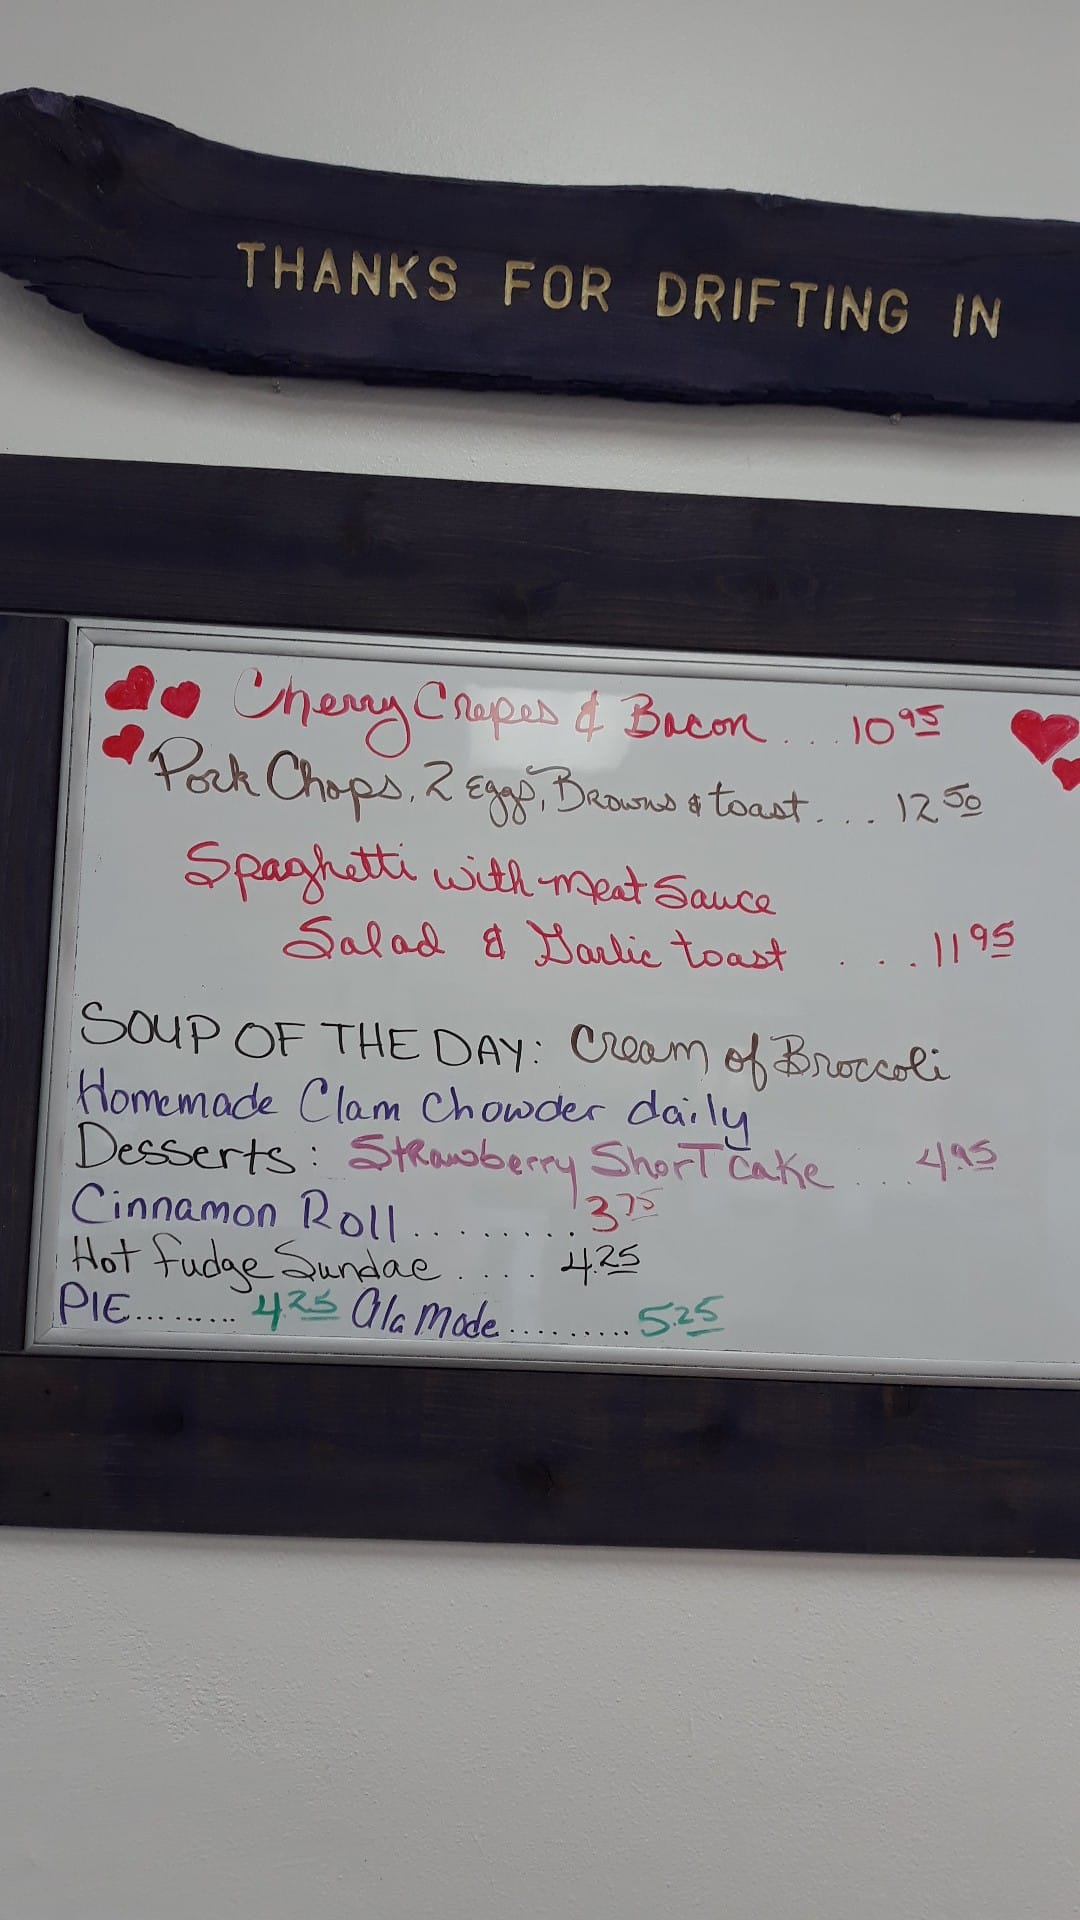 THANKS FOR DRIFTING IN
Cherry Crepes & Bacon ... 10 95
Pork Chops, 2 Eggs, Browns & toast. ... 12 50
Spaghetti with meat Sauce
Salad & Garlic toast ....11 95
SOUP OF THE DAY: Cream of Broccoli
Homemade Clam Chowder daily
Desserts: Strawberry ShorT Cake .... 4.95
Cinnamon Roll......... 3 75
Hot Fudge Sundae .... 4.25
PIE......... 4.25 Ala Mode.......... 5.25